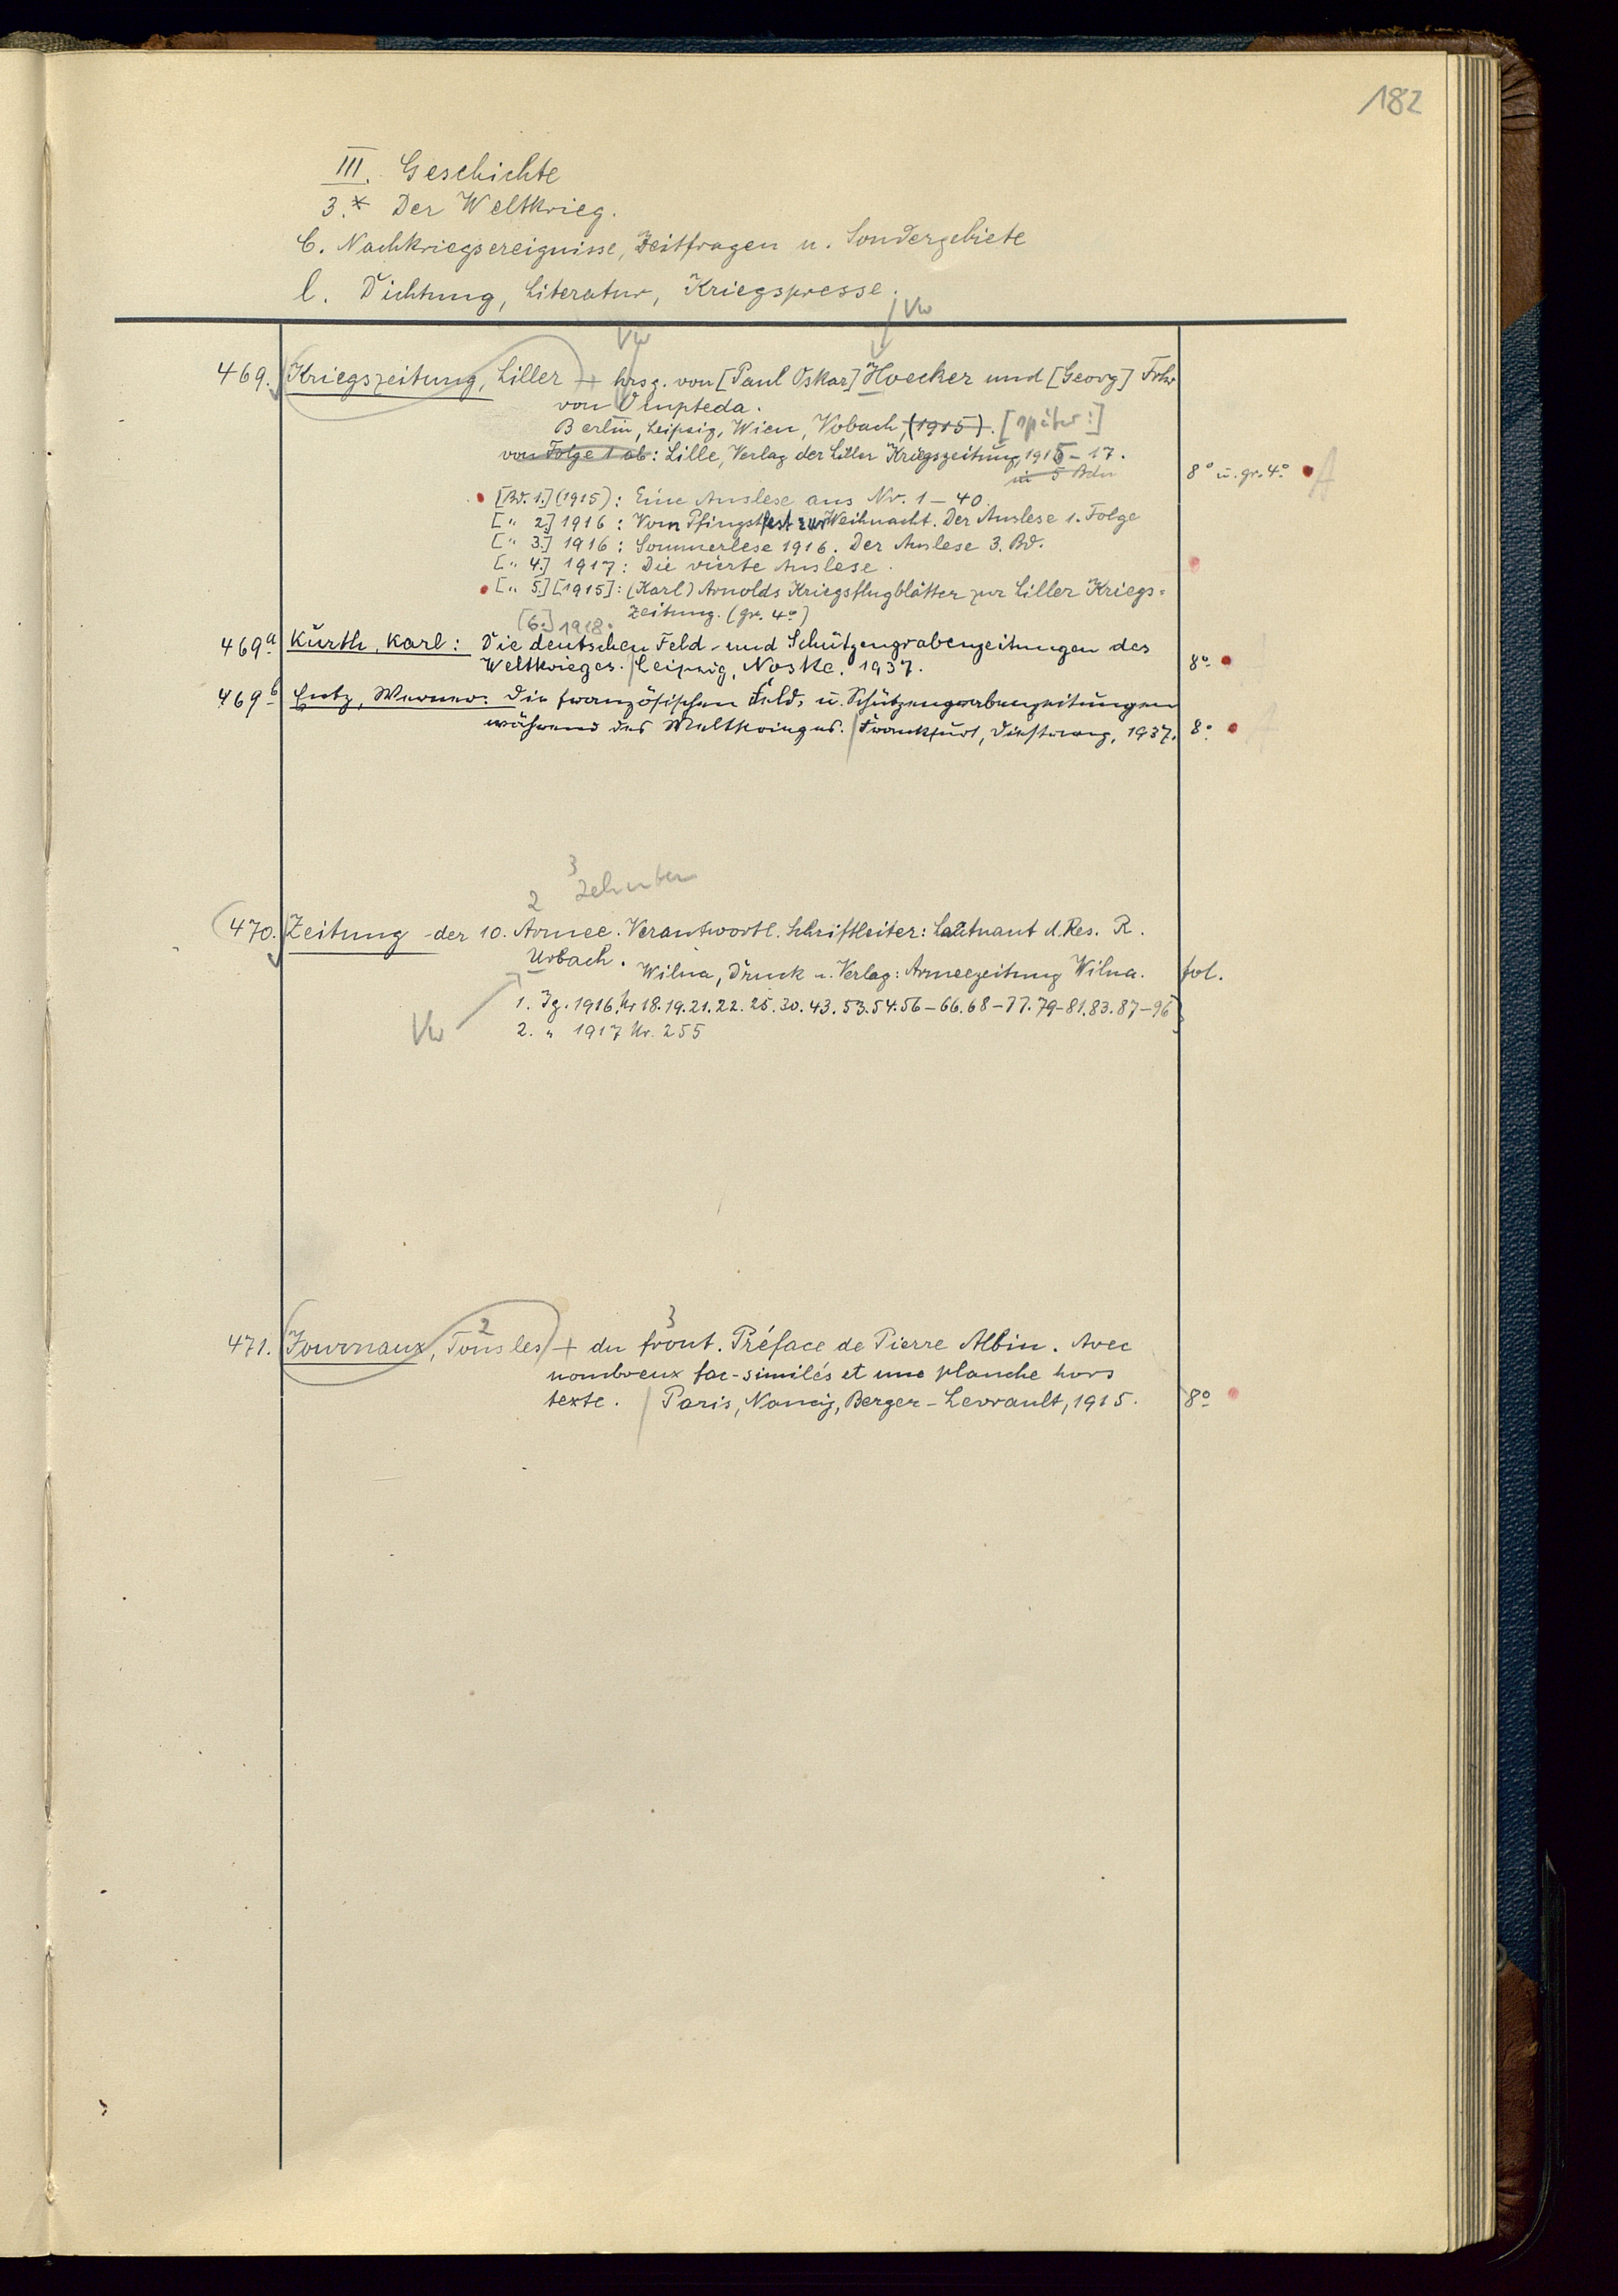 182
III. Geschichte
3.* Der Weltkrieg.
C. Nachkriegsereignisse, Zeitfragen u. Sondergebiete
l. Dichtung, Literatur, Kriegspresse.
Vw
Vw
469. Kriegszeitung, Liller + hrsg. von [Paul Oskar] Hoecker und [Georg] Frhr
von Ompteda.
Berlin, Leipzig, Wien, Vobach, (1915). [später:]
von Folge 1 ab: Lille, Verlag der Liller Kriegszeitung, 1915-17.
in 5 Bdn 8° u. gr. 4° A
[Bd. 1.] (1915): Eine Auslese aus Nr. 1-40.
[" 2.] 1916: Vom Pfingstfest zur Weihnacht. Der Auslese 1. Folge
[" 3.] 1916: Sommerlese 1916. Der Auslese 3. Bd.
[" 4.] 1917: Die vierte Auslese.
[" 5.] [1915]: (Karl) Arnolds Kriegsflugblätter zur Liller Kriegs=
zeitung. (gr. 4°)
[6.] 1918.
469a Kurth, Karl: Die deutschen Feld- und Schützengrabenzeitungen des
Weltkrieges. / Leipzig, Noske, 1937. 8°
469b Lutz, Werner: Die französischen Feld- u. Schützengrabenzeitungen
während des Weltkrieges. / Frankfurt, Diesterweg, 1937. 8°
3
2 Zehnten
470. Zeitung der 10. Armee. Verantwortl. Schriftleiter: Leutnant d. Res. R.
Urbach. Wilna, Druck u. Verlag: Armeezeitung Wilna. fol.
1. Jg. 1916. Nr 18.19.21.22.25.30.43.53.54.56-66.68-77.79-81.83.87-96
Vw 2. " 1917 Nr. 255
2 3
471. Journaux, Tous les + du front. Préface de Pierre Albin. Avec
nombreux fac-similés et une planche hors
texte. / Paris, Nancy, Berger-Levrault, 1915. 8°